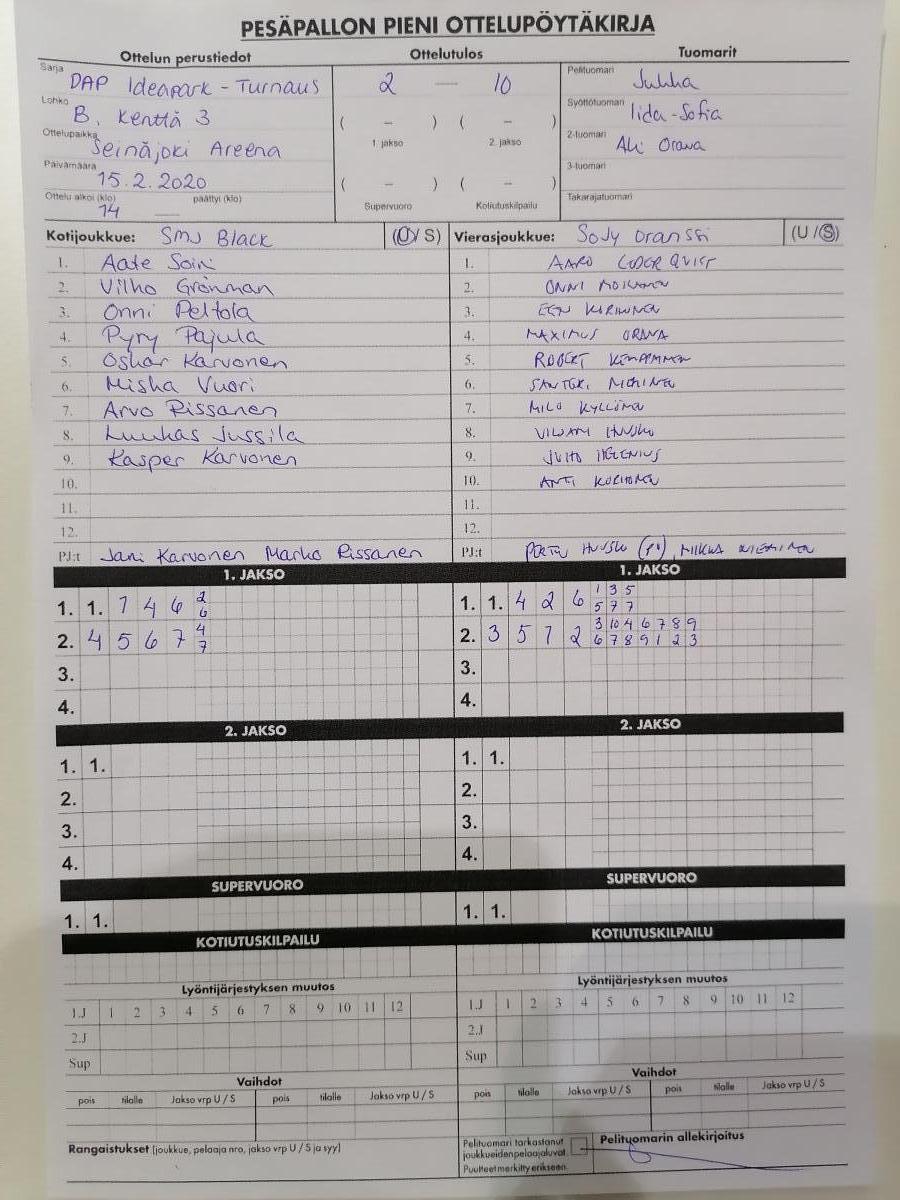 PESÄPALLON PIENI OTTELUPÖYTÄKIRJA
Ottelun perustiedot
Sarja DAP Ideapark - Turnaus
Lohko B, Kenttä 3
Ottelupaikka Seinäjoki Areena
Päivämäärä 15.2.2020
Ottelu alkoi (klo) 14 — päättyi (klo)
Ottelutulos
2 — 10
( – ) ( – )
1. jakso 2. jakso
( – ) ( – )
Supervuoro Kotiutuskilpailu
Tuomarit
Pelituomari Jukka
Syöttötuomari Iida-Sofia
2-tuomari Aki Orava
3-tuomari
Takarajatuomari
Kotijoukkue: SMJ Black (U/S)
1. Aate Soini
2. Vilho Grönman
3. Onni Peltola
4. Pyry Pajula
5. Oskar Karvonen
6. Misha Vuori
7. Arvo Rissanen
8. Luukas Jussila
9. Kasper Karvonen
10.
11.
12.
PJ:t Jani Karvonen Marko Rissanen
Vierasjoukkue: SoJy Oranssi (U/S)
1. AARO
2. ONNI
3. EEN
4. MAXIMUS ORAVA
5. ROBERT
6. SANTERI
7. MILO
8.
9.
10.
11.
12.
PJ:t HUUSKO (PJ),
1. JAKSO
1. 1. 7 4 6 2
6
2. 4 5 6 7 4
7
3.
4.
1. JAKSO
1. 1. 4 2 6 1 3 5
5 7 7
2. 3 5 1 2 3 10 4 6 7 8 9
6 7 8 9 1 2 3
3.
4.
2. JAKSO
1. 1.
2.
3.
4.
2. JAKSO
1. 1.
2.
3.
4.
SUPERVUORO
1. 1.
SUPERVUORO
1. 1.
KOTIUTUSKILPAILU
KOTIUTUSKILPAILU
Lyöntijärjestyksen muutos
1.J 1 2 3 4 5 6 7 8 9 10 11 12
2.J
Sup
Lyöntijärjestyksen muutos
1.J 1 2 3 4 5 6 7 8 9 10 11 12
2.J
Sup
Vaihdot
pois tilalle Jakso vrp U / S pois tilalle Jakso vrp U / S
Vaihdot
pois tilalle Jakso vrp U / S pois tilalle Jakso vrp U / S
Rangaistukset (joukkue, pelaaja nro, jakso vrp U / S ja syy)
Pelituomari tarkastanut
joukkueiden pelaajaluvat.
Puutteet merkitty erikseen.
Pelituomarin allekirjoitus